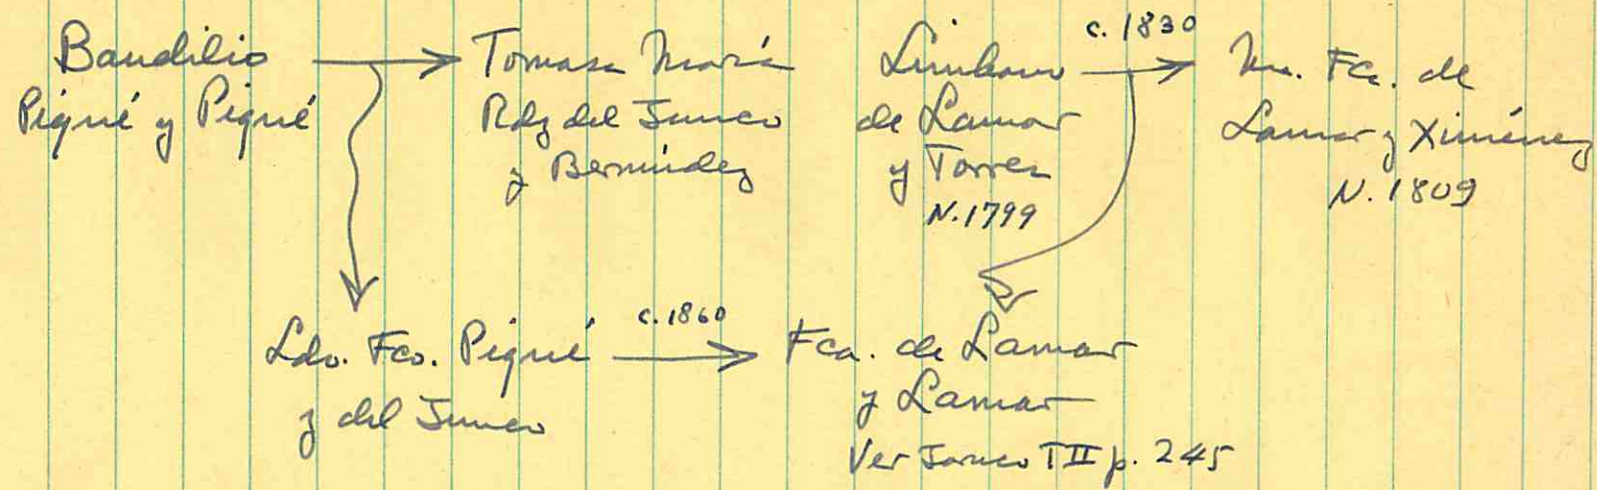 Baudilio
Piqué y Piqué
Tomasa María
Rdz del Junco
y Bermúdez
c. 1830
de Lamar
y Torres
N. 1799
Ma. Fca. de
Lamar y Ximénez
N. 1809
Ldo. Fco. Piqué
y del Junco
c. 1860
Fca. de Lamar
y Lamar
Ver Jaruco T II p. 245